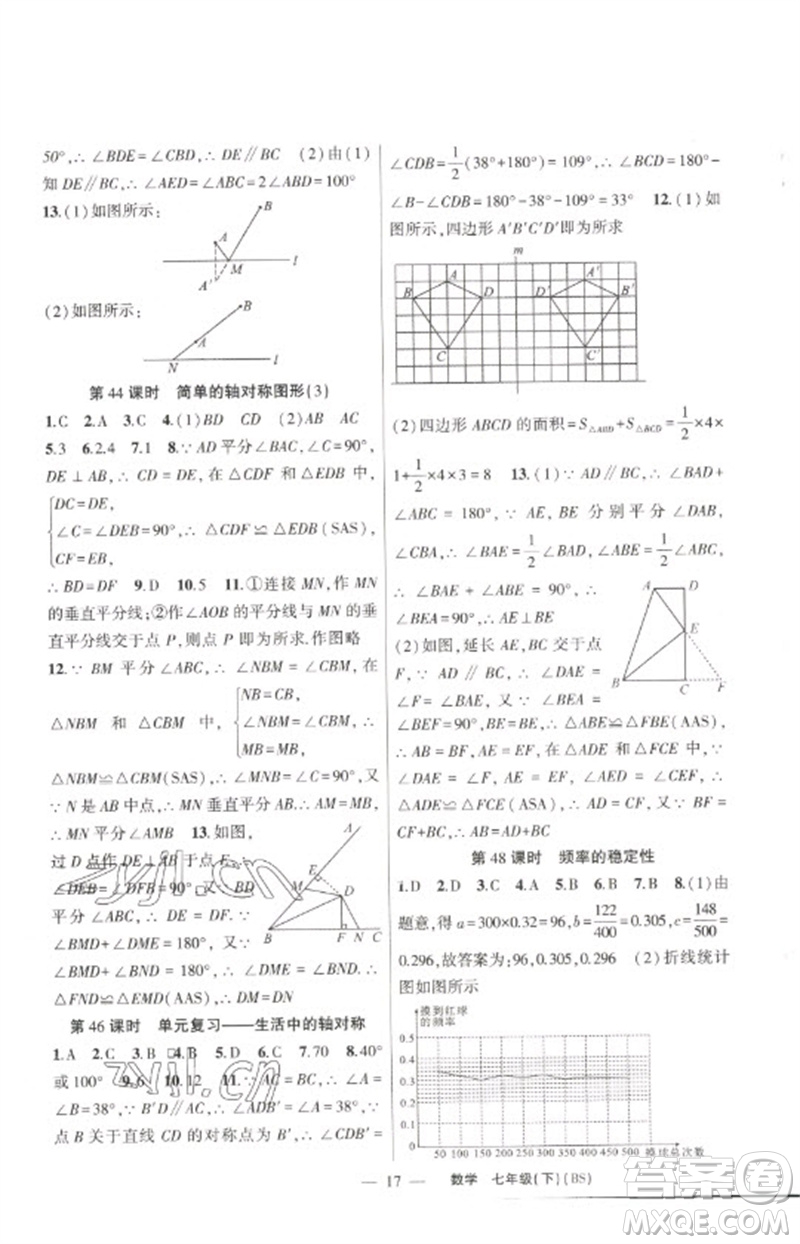 50°,∴ ∠BDE=∠CBD,∴ DE∥BC (2)由(1)
知 DE∥BC,∴ ∠AED=∠ABC=2∠ABD=100°
13.(1)如图所示:
B
A
M
l
A′
(2)如图所示:
B
A
N
l
第 44 课时 简单的轴对称图形(3)
1.C 2.A 3.C 4.(1)BD CD (2)AB AC
5.3 6.2.4 7.1 8.∵ AD 平分∠BAC,∠C=90°,
DE⊥AB,∴ CD=DE,在△CDF 和△EDB 中,
{DC=DE,
∠C=∠DEB=90°,∴ △CDF≌△EDB(SAS),
CF=EB,
∴ BD=DF 9.D 10.5 11.①连接 MN,作 MN
的垂直平分线;②作∠AOB 的平分线与 MN 的垂
直平分线交于点 P,则点 P 即为所求.作图略
12.∵ BM 平分∠ABC,∴ ∠NBM=∠CBM,在
{NB=CB,
△NBM 和 △CBM 中, ∠NBM=∠CBM,∴
MB=MB,
△NBM≌△CBM(SAS),∴ ∠BNM=∠C=90°,又
∵ N 是 AB 中点,∴ MN 垂直平分线段 AB,∴
MN 平分∠AMB 13.如图,
A
过 D 点作 DE⊥AB 于点 E,
E
∠DEB=∠DFB=90°,∵ BD
M
D
平分 ∠ABC,∴ DE=DF,∵
B
F N C
∠BMD+∠DME=180°,又∵
∠BMD+∠BND=180°,∴ ∠DME=∠BND,
∴ △FND≌△EMD(AAS),∴ DM=DN
第 46 课时 单元复习——生活中的轴对称
1.A 2.C 3.C 4.B 5.D 6.C 7.70 8.40°
或 100° 9.6 10.12 11.∵ AC=BC,∴ ∠A=
∠B=38°,∵ B′D∥AC,∴ ∠ADB′=∠A=38°,∵
点 B 关于直线 CD 的对称点为 B′,∴ ∠CDB′=
∠CDB=1/2(38°+180°)=109°,∴ ∠BCD=180°-
∠B-∠CDB=180°-38°-109°=33° 12.(1)如
图所示,四边形 A′B′C′D′即为所求
m
A
B
D
C
A′
D′
B′
C′
(2)四边形 ABCD 的面积=S△ABD+S△BCD=1/2×4×
1+1/2×4×3=8 13.(1)∵ AD∥BC,∴ ∠BAD+
∠ABC=180°,∵ AE,BE 分别平分∠DAB,
∠CBA,∴ ∠BAE=1/2∠BAD,∠ABE=1/2∠ABC,
∴ ∠BAE+∠ABE=90°,∴
∠BEA=90°,∴ AE⊥BE
A D
E
B C F
(2)如图,延长 AE,BC 交于点
F,∵ AD∥BC,∴ ∠DAE=
∠F=∠BAE,又∵ ∠BEA=
∠BEF=90°,∴ △ABE≌△FBE(AAS),
∴ AB=BF,AE=EF,在△ADE 和△FCE 中,
∠DAE=∠F,AE=EF,∠AED=∠CEF,∴
△ADE≌△FCE(ASA),∴ AD=CF,∴ AB=BF=
CF+BC=AD+BC
第 48 课时 频率的稳定性
1.D 2.D 3.C 4.C 5.B 6.B 7.B 8.(1)由
题意,得 a=300×0.32=96,b=122/400=0.305,c=148/500=
0.296,故答案为:96,0.305,0.296 (2)折线统计
图如图所示
摸到红球
的频率
0.5
0.4
0.3
0.2
0.1
0
50 100 150 200 250 300 350 400 450 500 摸球总次数
— 17 — 数学 七年级(下)(BS)
zyjl.cn
zyjl.cn
答案圈
MXQE.COM